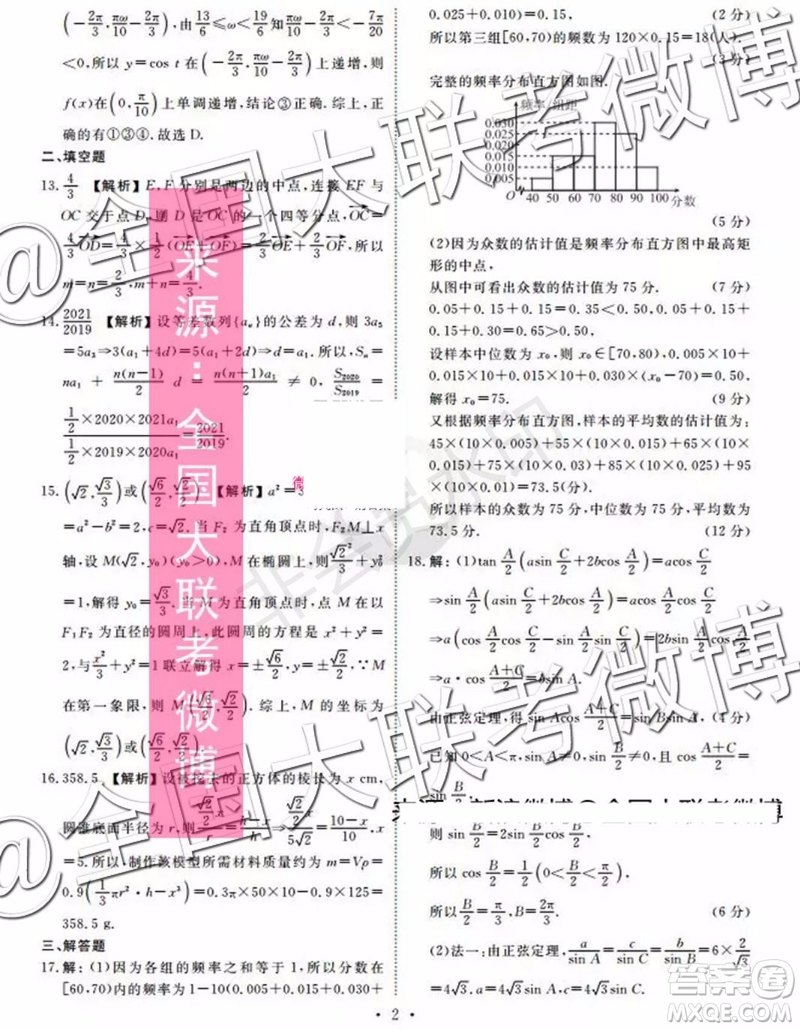 (-2π/3, πω/10 - 2π/3), 由 13/6 ≤ω< 19/6 知 πω/10 - 2π/3
<0,所以 y=cos t 在(-2π/3, πω/10 - 2π/3)上递增,则
f(x)在(0, π/10)上单调递增,结论③正确.综上,正
确的有①③④.故选 D.
二、填空题
13. 4/3 【解析】E,F 分别是两边的中点,连接 EF 与
OC 交于点 D,则 D 是 OC 的一个四等分点,
OC = 4/3 OD = 2/3 (OE+OF) = 2/3 OE + 2/3 OF,所以
m=n= 2/3, m+n= 4/3.
14. 2021/2019 【解析】设等差数列{aₙ}的公差为 d,则 3a₅
=5a₃⇒3(a₁+4d)=5(a₁+2d)⇒d=a₁.所以,Sₙ=
na₁ + n(n-1)/2 d = n(n+1)a₁/2 ≠0, S₂₀₂₀/S₂₀₁₉
(1/2×2020×2021a₁)/(1/2×2019×2020a₁) = 2021/2019.
15. (√2, √3/3)或(√6/2, √2/2) 【解析】a²=3
=a²-b²=2,c=√2. 当 F₂ 为直角顶点时,F₂M⊥x
轴,设 M(√2,y₀)(y₀>0),M 在椭圆上,所以 √2²/3 + y₀²
=1,解得 y₀= √3/3;当 M 为直角顶点时,点 M 在以
F₁F₂ 为直径的圆周上,此圆周的方程为 x²+y²=
2,与 x²/3 +y²=1 联立解得 x=± √6/2, y=± √2/2, ∵M
在第一象限,则 M(√6/2, √2/2). 综上,M 的坐标为
(√2, √3/3)或(√6/2, √2/2).
16. 358.5 【解析】设被挖去的正方体的棱长为 x cm,
圆锥底面半径为 r.则
x=5. 所以,制作该模型所需材料质量约为 m=Vρ=
0.9(1/3 πr²·h-x³)=0.3×π×50×10-0.9×125=
358.5 g.
三、解答题
17. 解:(1)因为各组的频率之和等于 1,所以分数在
[60,70)内的频率为 1-10(0.005+0.015+0.030+
0.025+0.010)=0.15, (2 分)
所以第三组[60,70)的频数为 120×0.15=18(人).
(3 分)
完整的频率分布直方图如图.
频率/组距
0.030
0.025
0.020
0.015
0.010
0.005
O 40 50 60 70 80 90 100 分数
(5 分)
(2)因为众数的估计值是频率分布直方图中最高矩
形的中点,
从图中可看出众数的估计值为 75 分. (7 分)
0.05+0.15+0.15=0.35<0.50,0.05+0.15+
0.15+0.30=0.65>0.50,
设样本中位数为 x₀,则 x₀∈[70,80),0.005×10+
0.015×10+0.015×10+0.030×(x₀-70)=0.50,
解得 x₀=75. (9 分)
又根据频率分布直方图,样本的平均数的估计值为:
45×(10×0.005)+55×(10×0.015)+65×(10×
0.015)+75×(10×0.03)+85×(10×0.025)+
95×(10×0.01)=73.5(分).
所以样本的众数为 75 分,中位数为 75 分,平均数为
73.5 分. (12 分)
18. 解:(1)tan A/2 (asin C/2 +2bcos A/2)=acos C/2
⇒sin A/2 (asin C/2 +2bcos A/2)=acos C/2 cos A/2
⇒a(cos C/2 cos A/2 -sin A/2 sin C/2)=2bsin A/2 cos A/2
⇒a·cos (A+C)/2 =bsin A.
由正弦定理,得 sin Acos (A+C)/2 =sin Bsin A. (4 分)
又已知 0<A<π,sin A≠0,所以 cos (A+C)/2
=sin B/2.
则 sin B/2 =2sin B/2 cos B/2.
所以 cos B/2 = 1/2 (0< B/2 < π/2).
所以 B/2 = π/3, B= 2π/3. (6 分)
(2)法一:由正弦定理, a/sin A = c/sin C = b/sin B =6× 2/√3
=4√3. a=4√3 sin A,c=4√3 sin C.
2
@全国大联考微博
来源:全国大联考微博
非会员水印
答案圈
MXQE.COM